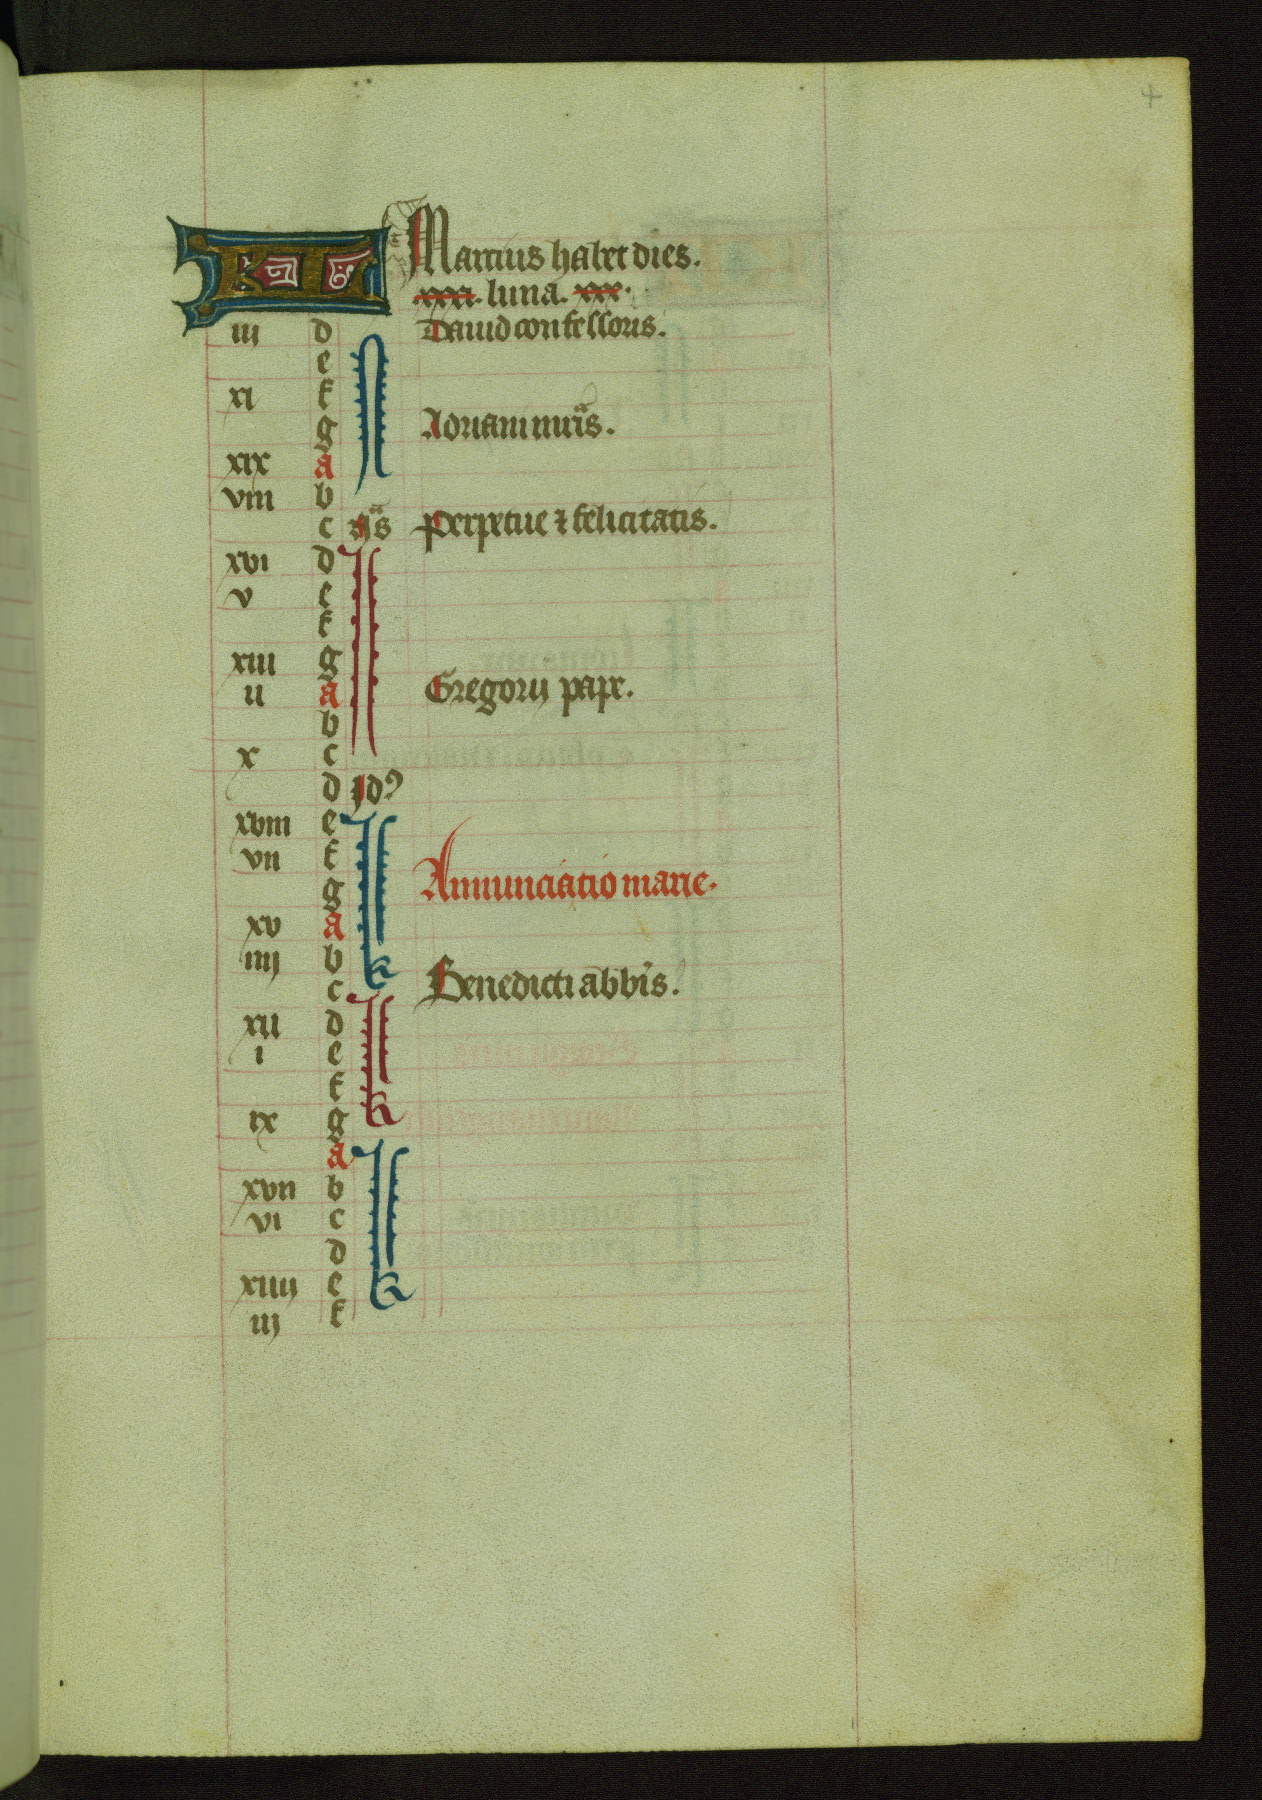 4
KL Marcius habet dies.
.xxxi. luna. xxx.
iij d Dauid confessoris.
e N
xi f
g Adriani mr̄is.
xix a
viii b
c Nas Perpetue ⁊ felicitatis.
xvi d N
v e
f
xiii g
ii a Gregorij pape.
b
x c
d Idꝰ
xviii e kl
vii f
g Annunciatio marie.
xv a
iiij b
c Benedicti abb̄is.
xii d kl
i e
f
ix g
a kl
xvii b
vi c
d
xiiij e
iij f